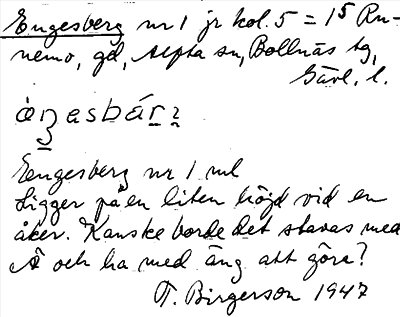 Engesberg nr 1 jr kol. 5 = 1⁵ Ru-
nemo, gd, Alfta sn, Bollnäs tg,
Gävl. l.
Engesberg nr 1 ml
Ligger på en liten höjd vid en
åker. Kanske borde det stavas med
Ä och ha med äng att göra?
T. Birgerson 1947